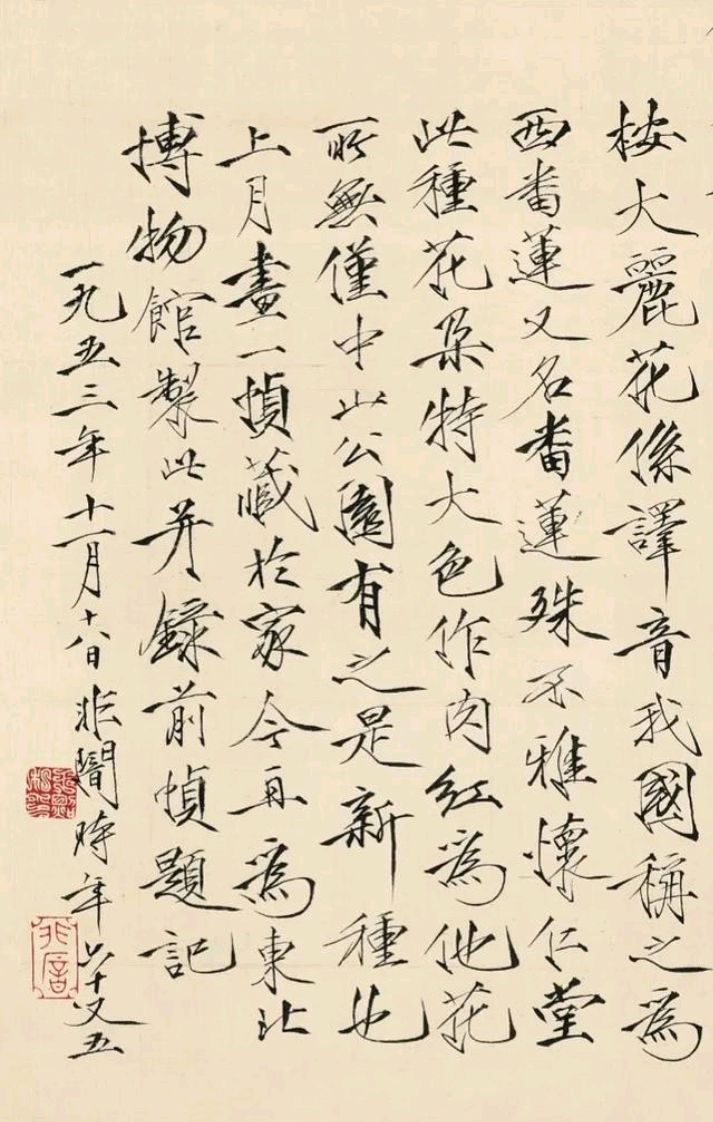 按大麗花係譯音我國稱之為
西番蓮又名番蓮殊不雅懷仁堂
此種花朵特大色作肉紅為他花
所無僅中山公園有之是新種也
上月畫一幀藏於家今再為東北
博物館製此并錄前幀題記
一九五三年十一月十八日非闇時年六十又五